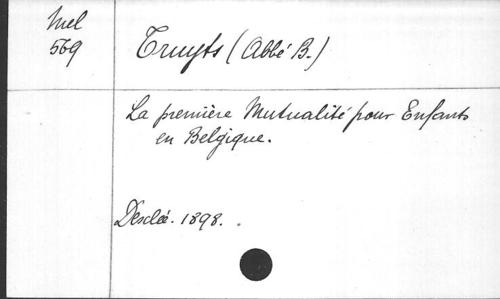 Mel
569
Truyts (Abbé B.)
La première Mutualité pour Enfants
en Belgique.
Desclée. 1898.